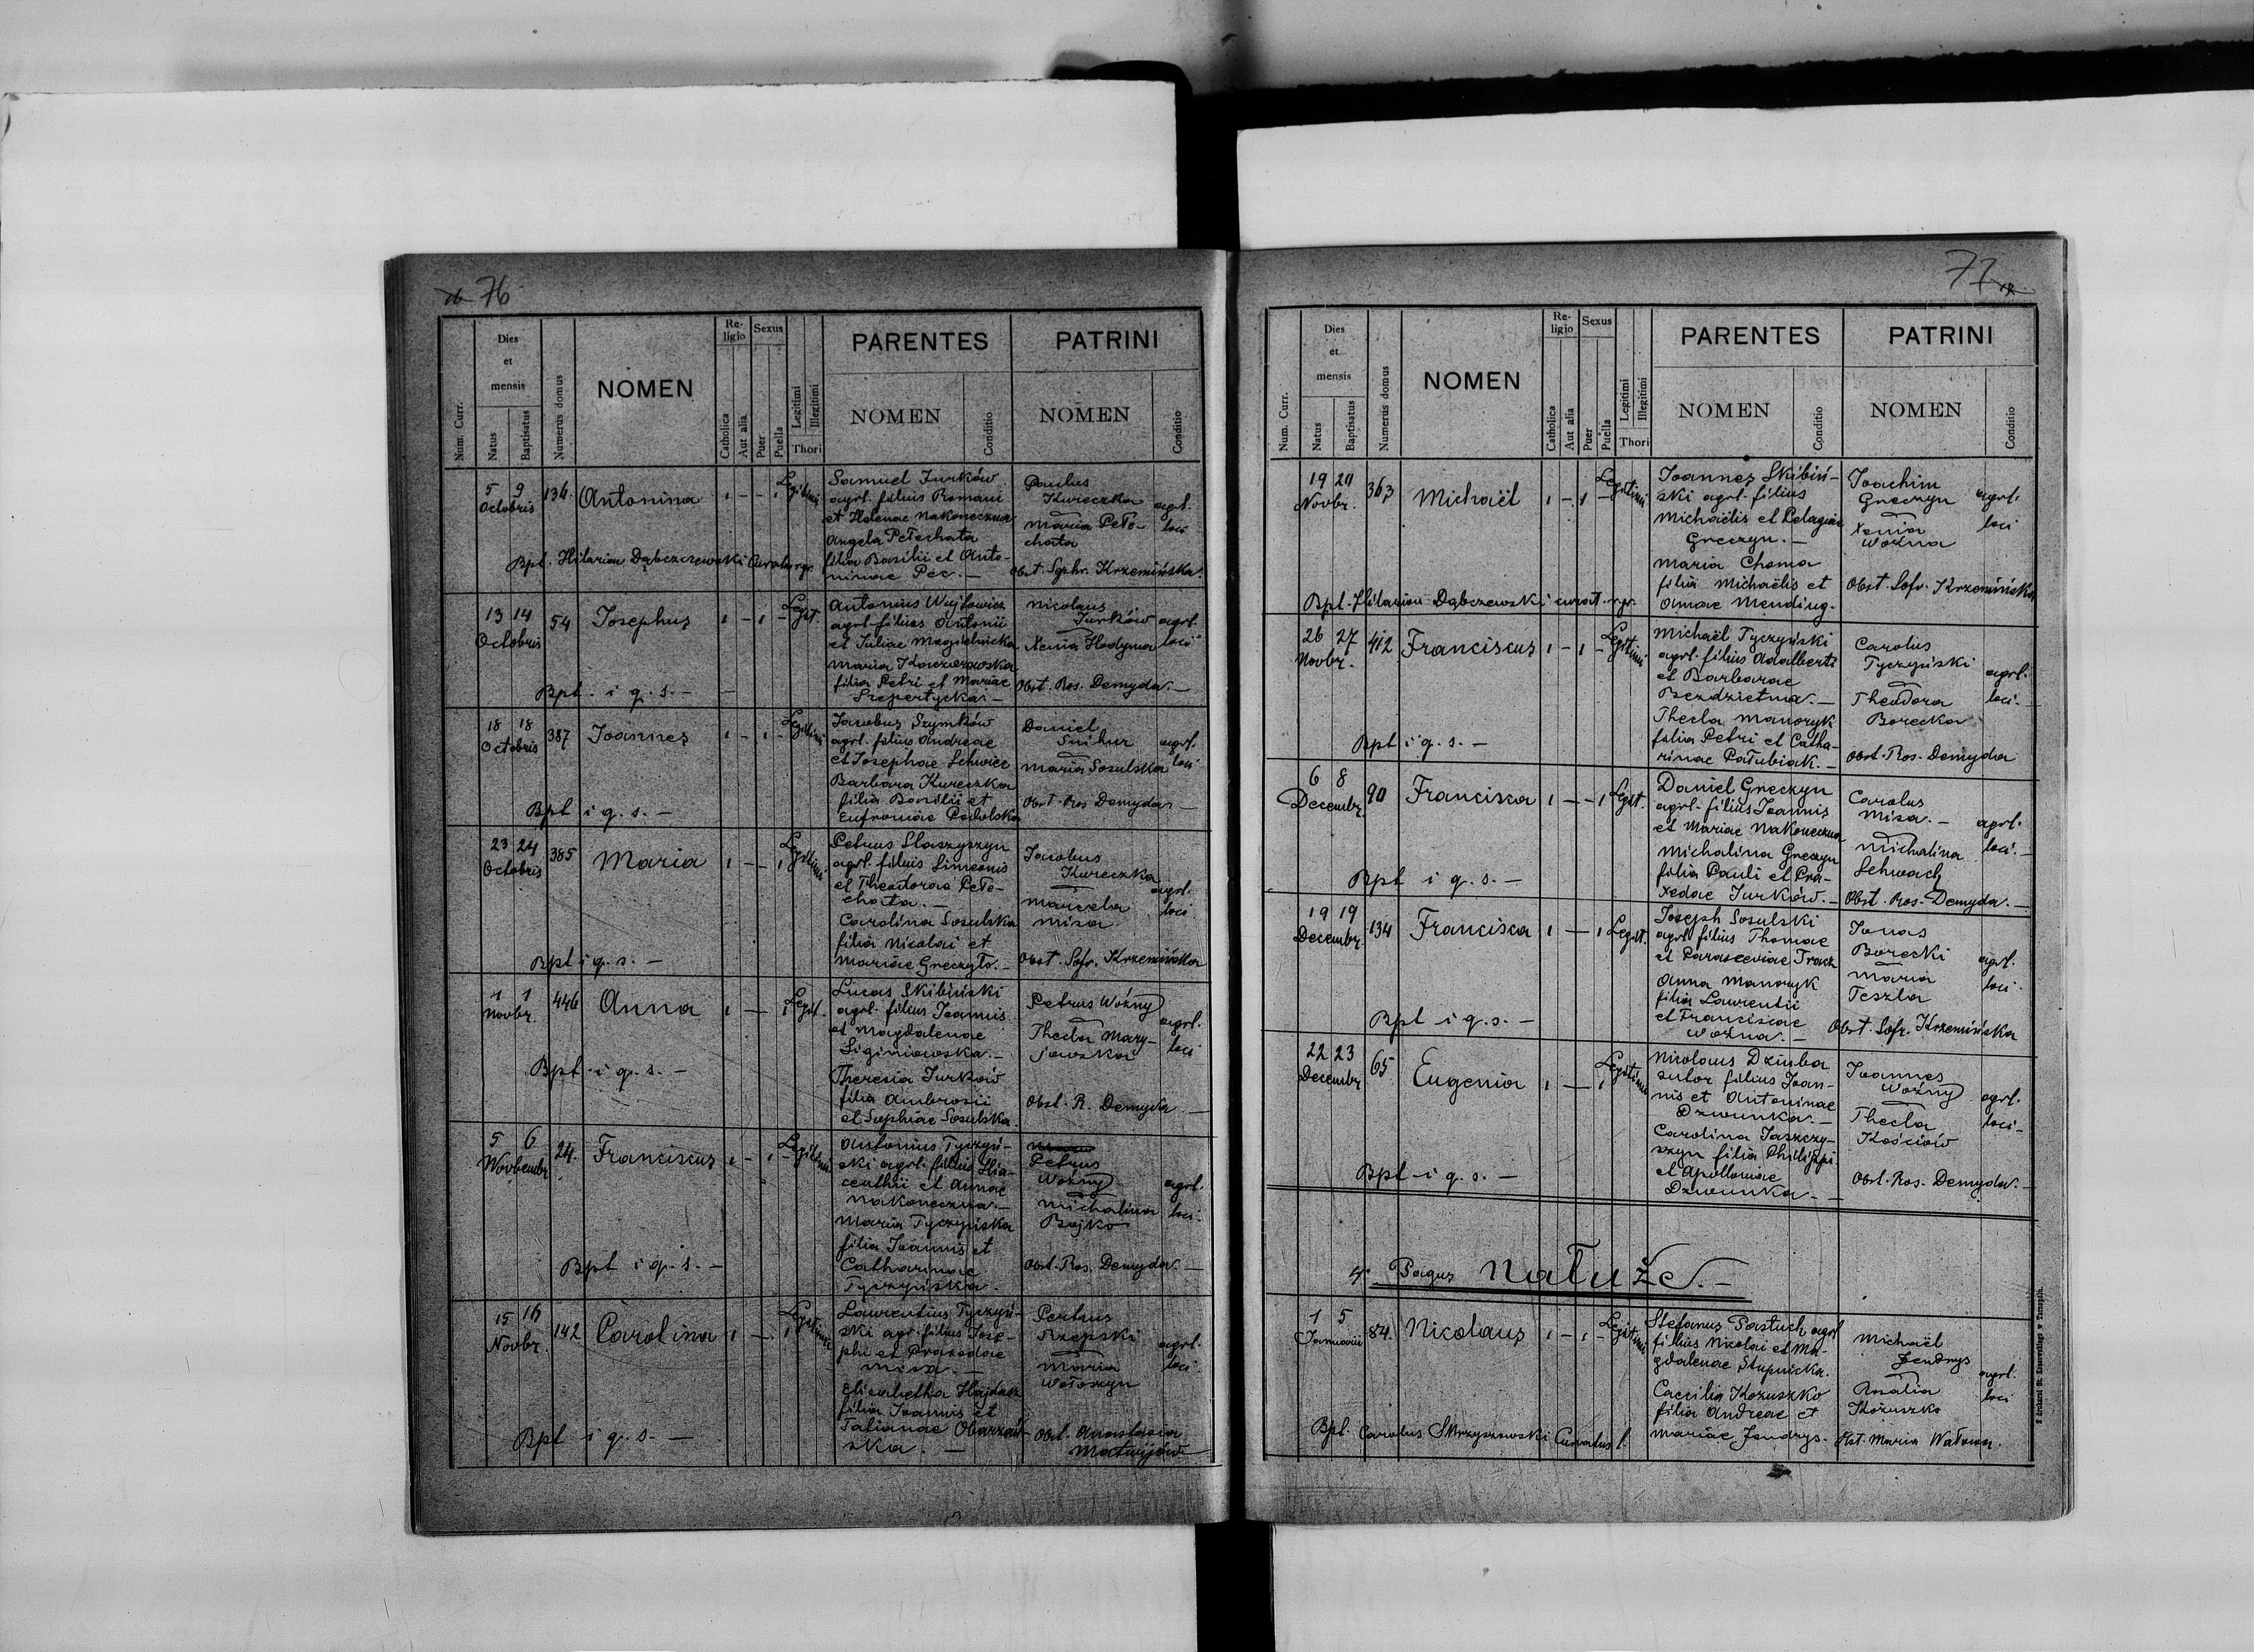 76
Num. Curr.
Dies et mensis
Natus
Baptisatus
Numerus domus
NOMEN
Re-
ligio
Catholica
Aut alia
Sexus
Puer
Puella
Legitimi
Illegitimi
Thori
PARENTES
NOMEN
Conditio
PATRINI
NOMEN
Conditio
5 9
Octobris
136.
Antonina
Legitimi
Samuel Jurków
agrl. filius Romani
et Helenae Nakoneczna
Angela Petechata
filia Basilii et Anto-
ninae Pec. —
Paulus
Kureczka
Maria Pete-
chata
agrl.
loci
Obst. Sphr. Krzemińska
Bpt. Hilarion Dąbczewski Curatus rgr.
13 14
Octobris
54
Josephus
Legit.
Antonius Wujtowicz
agrl. filius Antonii
et Juliae Magielnicka
Maria Kaczorowska
filia Petri et Mariae
Szepertycka —
Nicolaus
Jurków
Xenia Hodyma
agrl.
loci
Obst. Ros. Demyda. —
Bpt. i q. s. —
18 18
Octobris
387
Joannes
Legitimi
Jacobus Szymków
agrl. filius Andreae
et Josephae Lehwice
Barbara Kureczka
filia Basilii et
Eufroniae Podolska
Daniel
Snihur
Maria Sosulska
agrl.
loci
Obst. Ros Demyda —
Bpt i q. s. —
23 24
Octobris
385
Maria
Legitimi
Petrus Staszyszyn
agrl. filius Simeonis
et Theodorae Pete-
chata. —
Carolina Sosulska
filia Nicolai et
Mariae Greczyło. —
Jacobus
Kureczka
Marcela
Misa
agrl.
loci
Obst. Sofr. Krzemińska
Bpt i q. s. —
1 1
Novbr.
446
Anna
Legit.
Lucas Skibiński
agrl. filius Joannis
et Magdalenae
Liginiowska. —
Theresia Jurków
filia Ambrosii
et Sophiae Sosulska.
Petrus Woźny
Thecla Mary-
jowska
agrl.
loci
Obst. R. Demyda —
Bpt. i q. s. —
5 6
Novbembr
24.
Franciscus
Legitimi
Antonius Tyczyń-
ski agrl. filius Hia-
centhii et Annae
Nakoneczna. —
Maria Tyczyńska
filia Joannis et
Catharinae
Tyczyńska.
Petrus
Woźny
Michalina
Bojko
agrl.
loci.
Obst. Ros. Demyda. —
Bpt i q. s. —
15 16
Novbr.
142
Carolina
Legitimi
Laurentius Tyczyń-
ski agr. filius Jose-
phi et Praxedae
Misa. —
Elisabetha Hajdasz
filia Joannis et
Tatianae Obarzań-
ska. —
Portrus
Rzepski
Maria
Wołoszyn
agrl.
loci.
Obst. Anastasia
Matwijów
Bpt i q. s. —
77
Num. Curr.
Dies et mensis
Natus
Baptisatus
Numerus domus
NOMEN
Re-
ligio
Catholica
Aut alia
Sexus
Puer
Puella
Legitimi
Illegitimi
Thori
PARENTES
NOMEN
Conditio
PATRINI
NOMEN
Conditio
19 20
Novbr.
363
Michaël
Legitimi
Joannes Skibiń-
ski agrl. filius
Michaëlis et Pelagiae
Greczyn. —
Maria Choma
filia Michaëlis et
Annae Mending.
Joachim
Greczyn
Xenia
Woźna
agrl.
loci
Obst. Sofr. Krzemińska
Bpt. Hilarion Dąbczewski curat. rgr.
26 27
Novbr.
412
Franciscus
Legitimi
Michaël Tyczyński
agrl. filius Adalberti
et Barbarae
Bezdzietna. —
Thecla Manoryk
filia Petri et Catha-
rinae Pałubiak. —
Carolus
Tyczyński
Theodora
Borecka
agrl.
loci.
Obst. Ros. Demyda
Bpt i q. s. —
6 8
Decembr.
90
Francisca
Legit.
Daniel Greczyn
agrl. filius Joannis
et Mariae Nakoneczna
Michalina Greczyn
filia Pauli et Pra-
xedae Jurków. —
Carolus
Misa. —
Michalina
Lehwach
agrl.
loci. —
Obst. Ros. Demyda. —
Bpt i q. s. —
19 19
Decembr.
134
Francisca
Legit.
Joseph Sosulski
agrl filius Thomae
et Parasceviae Tracz
Anna Manoryk
filia Laurentii
et Franciscae
Woźna. —
Jonas
Borecki
Maria
Teszla
agrl.
loci
Obst. Sofr. Krzemińska
Bpt i q. s. —
22 23
Decembr
65
Eugenia
Legitimi
Nicolaus Dziuba
sutor filius Joan-
nis et Antoninae
Dzwunka. —
Carolina Jaszczy-
szyn filia Philippi
et Apolloniae
Dzwunka. —
Joannes
Woźny
Thecla
Kościów
agrl.
loci —
Obst. Ros. Demyda. —
Bpt i q. s. —
4. Pagus Natuże. —
1 5
Januarii
84.
Nicolaus
Legitimi
Stefanus Pastuch agrl
filius Nicolai et Ma-
gdalenae Stupnicka.
Caecilia Kozuszko
filia Andreae et
Mariae Jendrys.
Michaël
Jendrys
Rosalia
Kożuszko
agrl.
loci
Obst. Maria Watowa.
Bpt. Carolus Skrzyszowski Curatus l.
Z drukarni St. Kossowskiego w Tarnopolu.